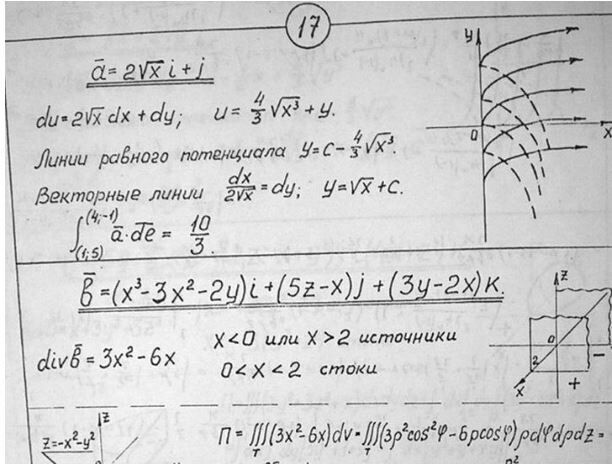 17
ā = 2√x i + j
du = 2√x dx + dy; u = 4/3 √x³ + y.
Линии равного потенциала y = C - 4/3 √x³.
Векторные линии dx/2√x = dy; y = √x + C.
∫(1;5)^(4;-1) ā·dē = 10/3.
y
0
x
b̄ = (x³ - 3x² - 2y)i + (5z - x)j + (3y - 2x)k.
div b̄ = 3x² - 6x
x < 0 или x > 2 источники
0 < x < 2 стоки
z
0
2
x
+
−
z
z = -x² - y²
П = ∭_T (3x² - 6x)dv = ∭_T (3ρ²cos²φ - 6ρcosφ) ρdφdρdz =